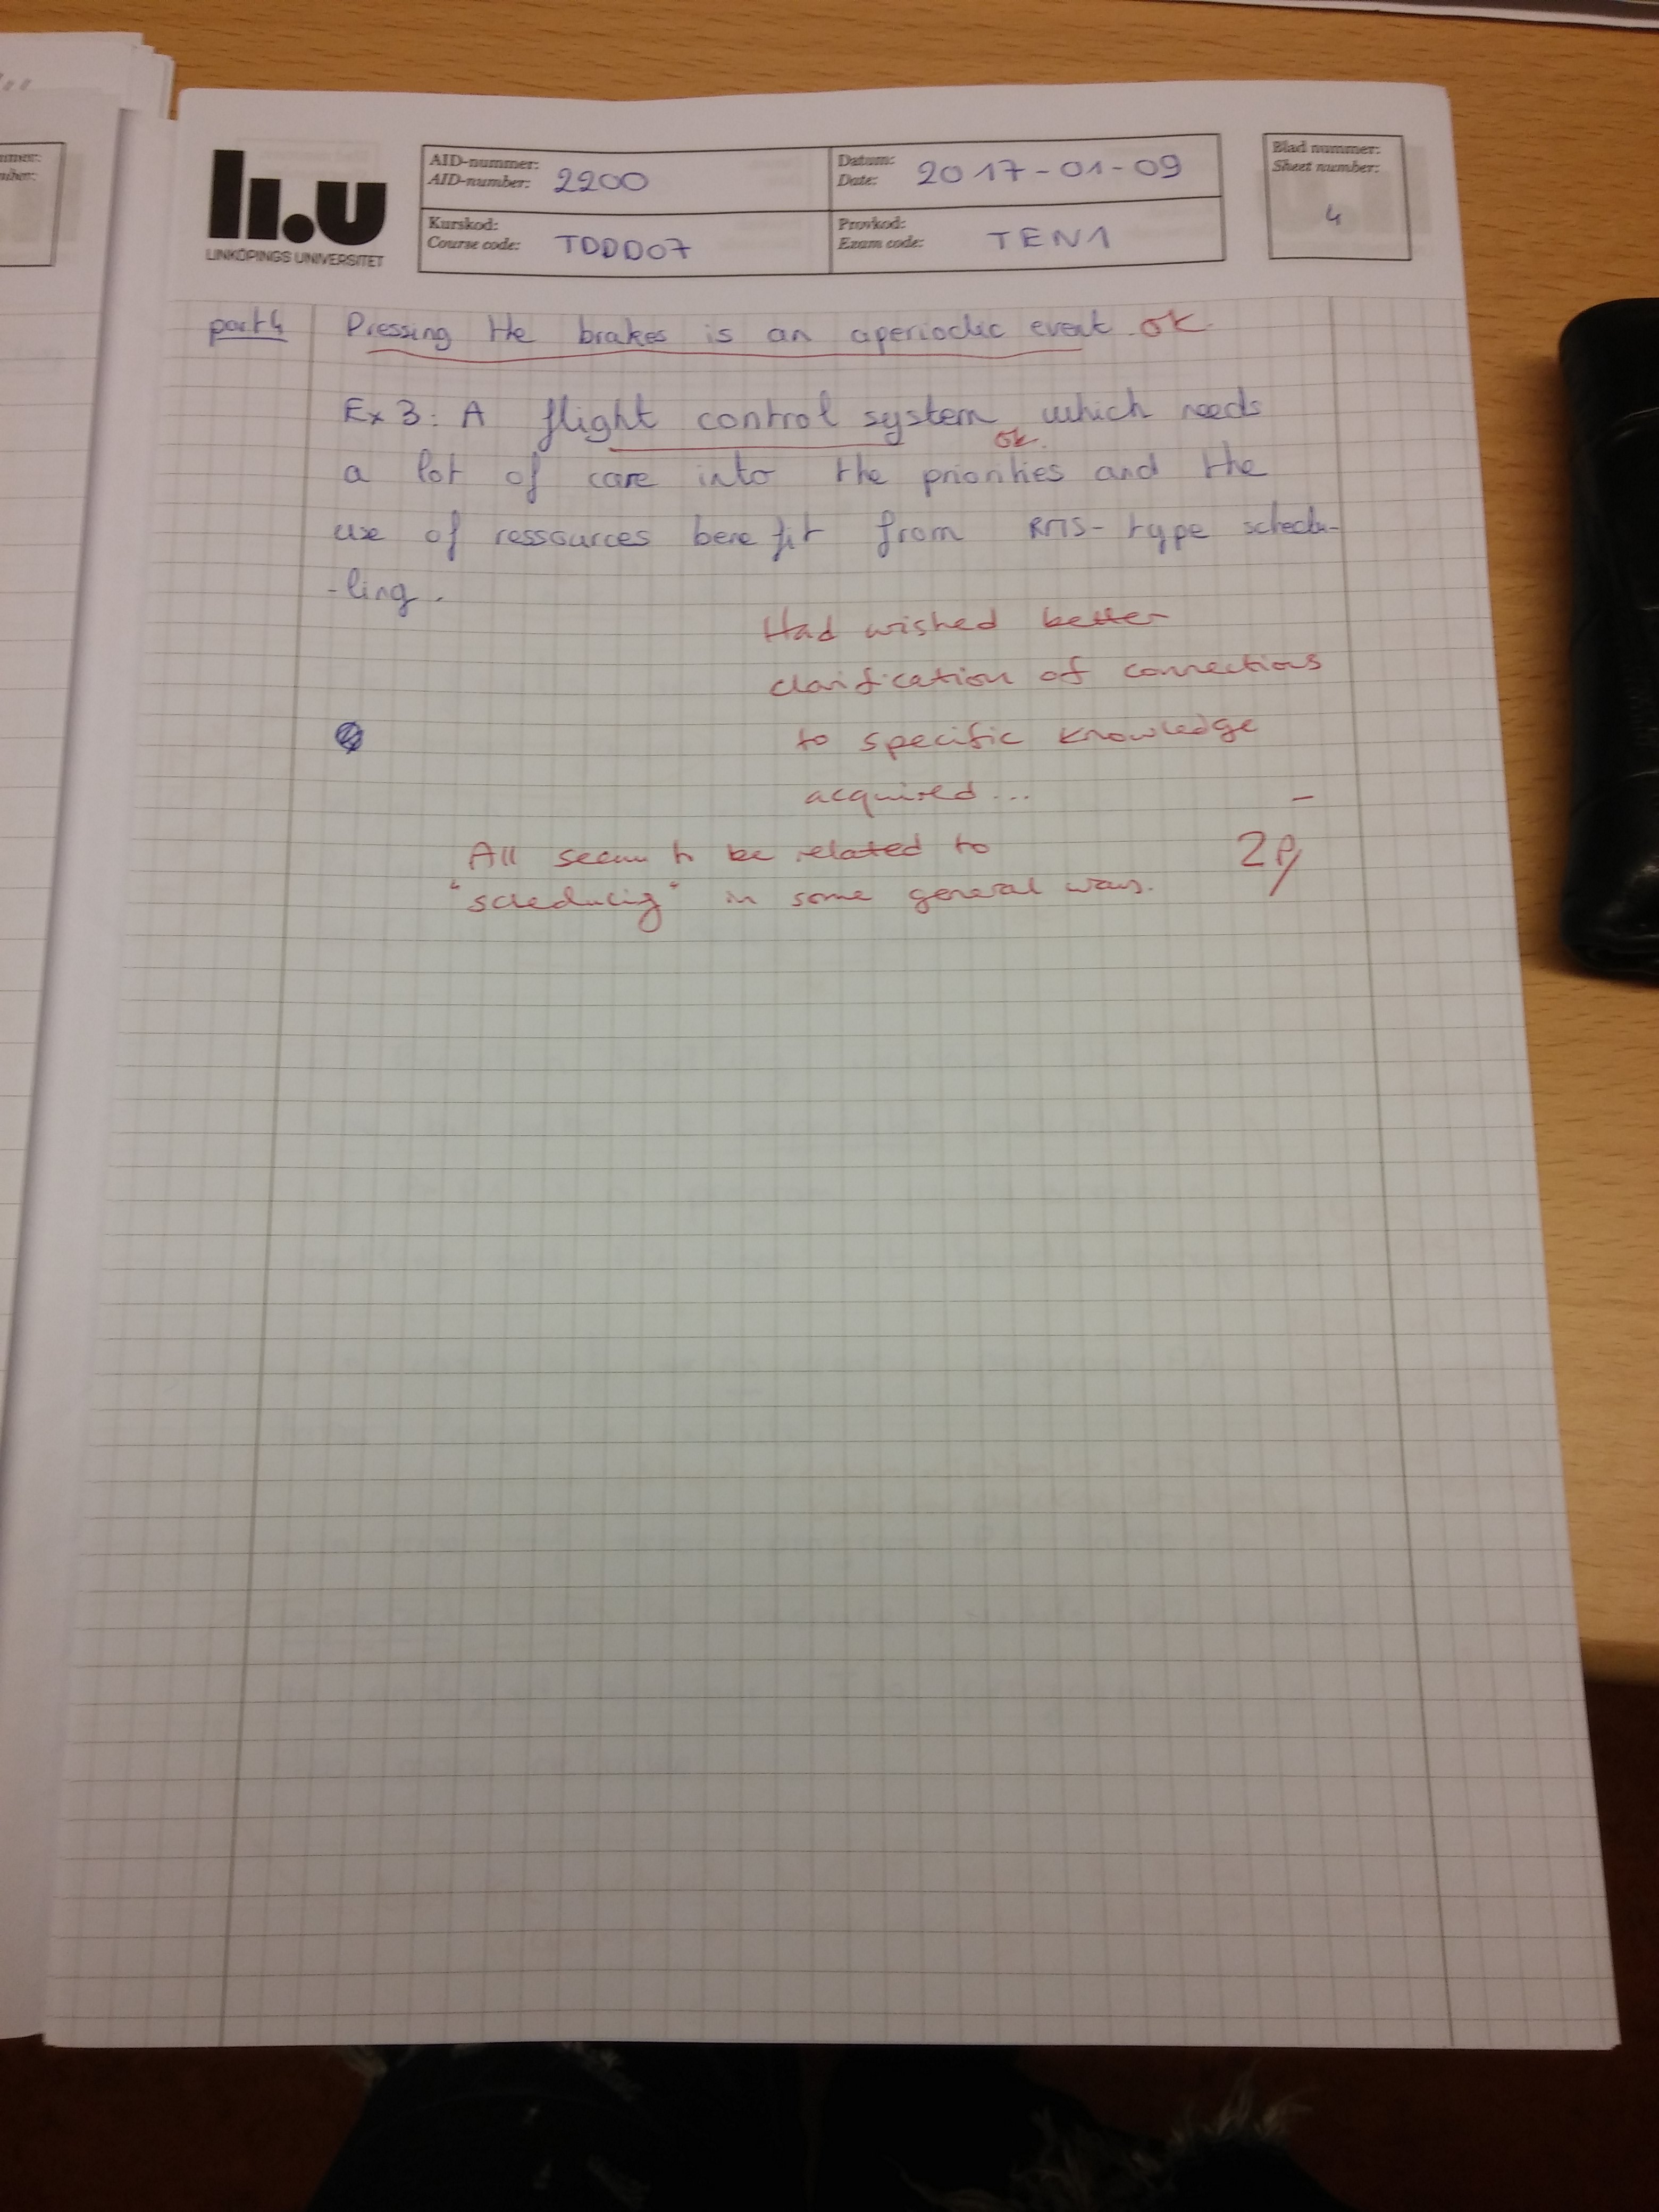 li.u
LINKÖPINGS UNIVERSITET
AID-nummer:
AID-number: 2200
Datum:
Date: 2017-01-09
Blad nummer:
Sheet number:
4
Kurskod:
Course code: TDDD07
Provkod:
Exam code: TEN1
part 4 Pressing the brakes is an aperiodic event. OK
Ex 3: A flight control system which needs
ok.
a lot of care into the priorities and the
use of ressources benefit from RMS-type schedu-
-ling.
Had wished better
clarification of connections
to specific knowledge
acquired...
All seem to be related to
2p
"scheduling" in some general ways.